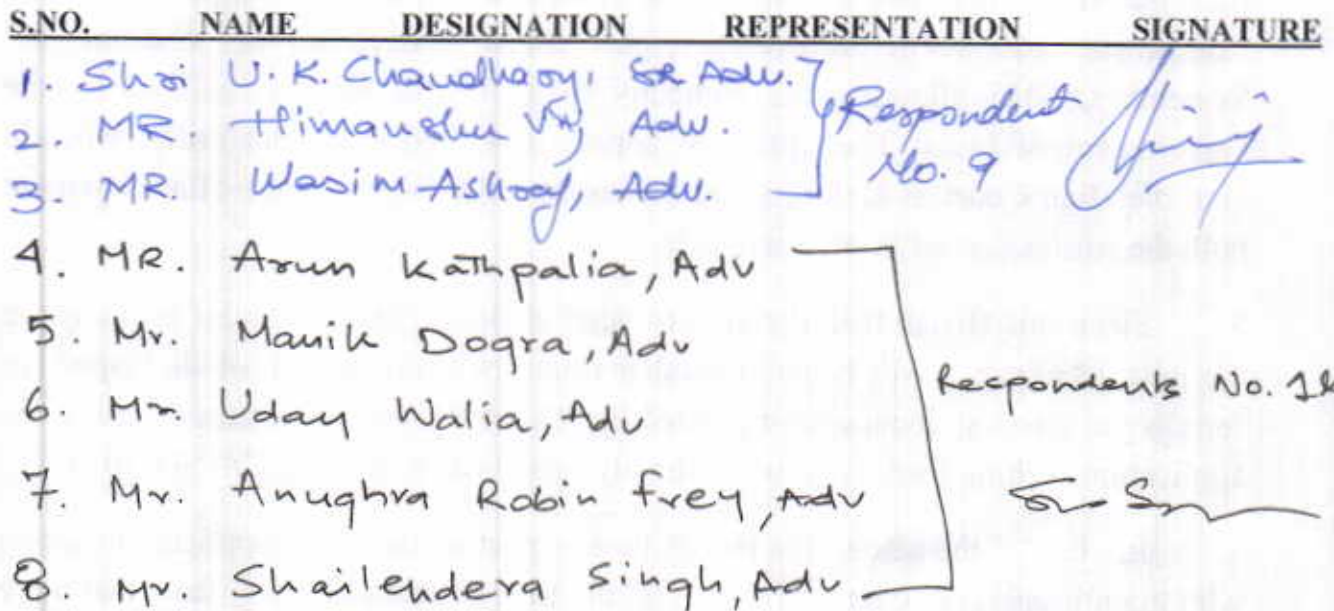 S.NO. NAME DESIGNATION REPRESENTATION SIGNATURE
1. Shri U.K. Chaudhary, Sr Adv.
2. MR. Himanshu Vij, Adv.
3. MR. Wasim Ashraf, Adv.
Respondent
No. 9
4. MR. Arun Kathpalia, Adv
5. Mr. Manik Dogra, Adv
6. Mr. Uday Walia, Adv
Respondents No.
7. Mr. Anughra Robin Frey, Adv
8. Mr. Shailendera Singh, Adv